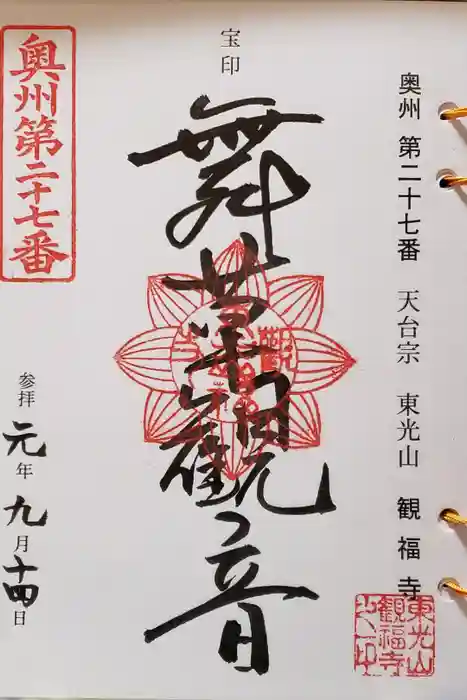 奥州 第二十七番 天台宗 東光山 観福寺
宝印
舞草観音
奥州第二十七番
参拝 元年 九月 十四日
東光山
観福寺